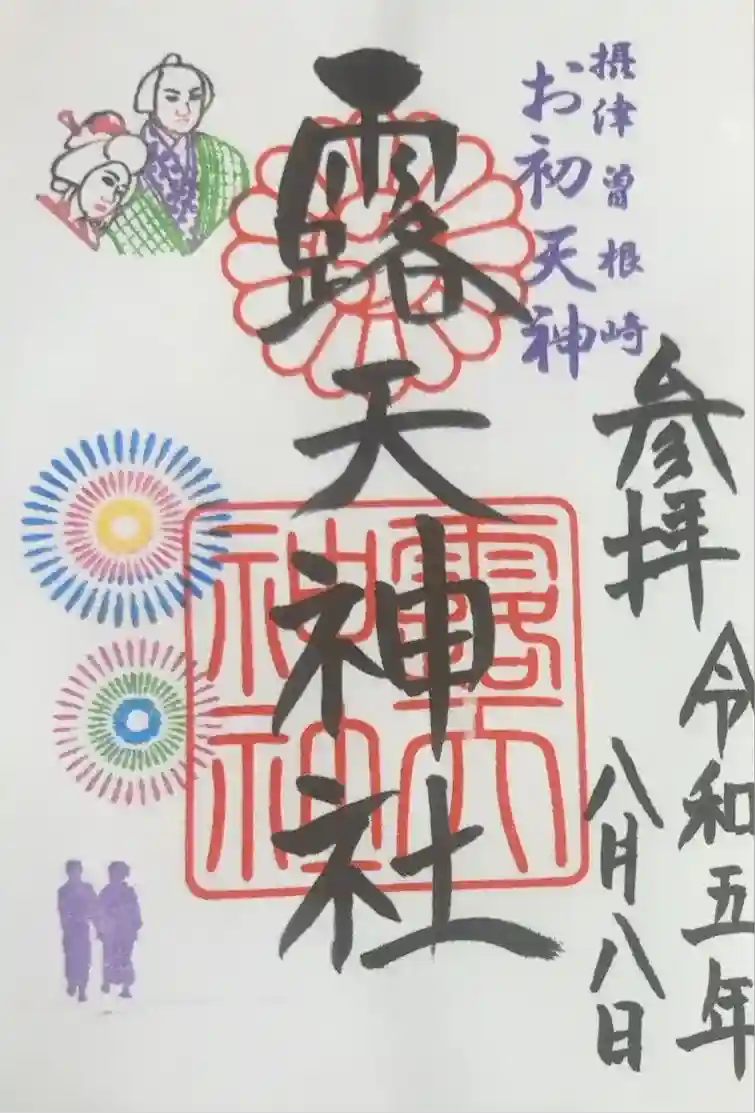 摂津曽根崎
お初天神
参拝
令和五年
八月八日
露天神社
露天
神社